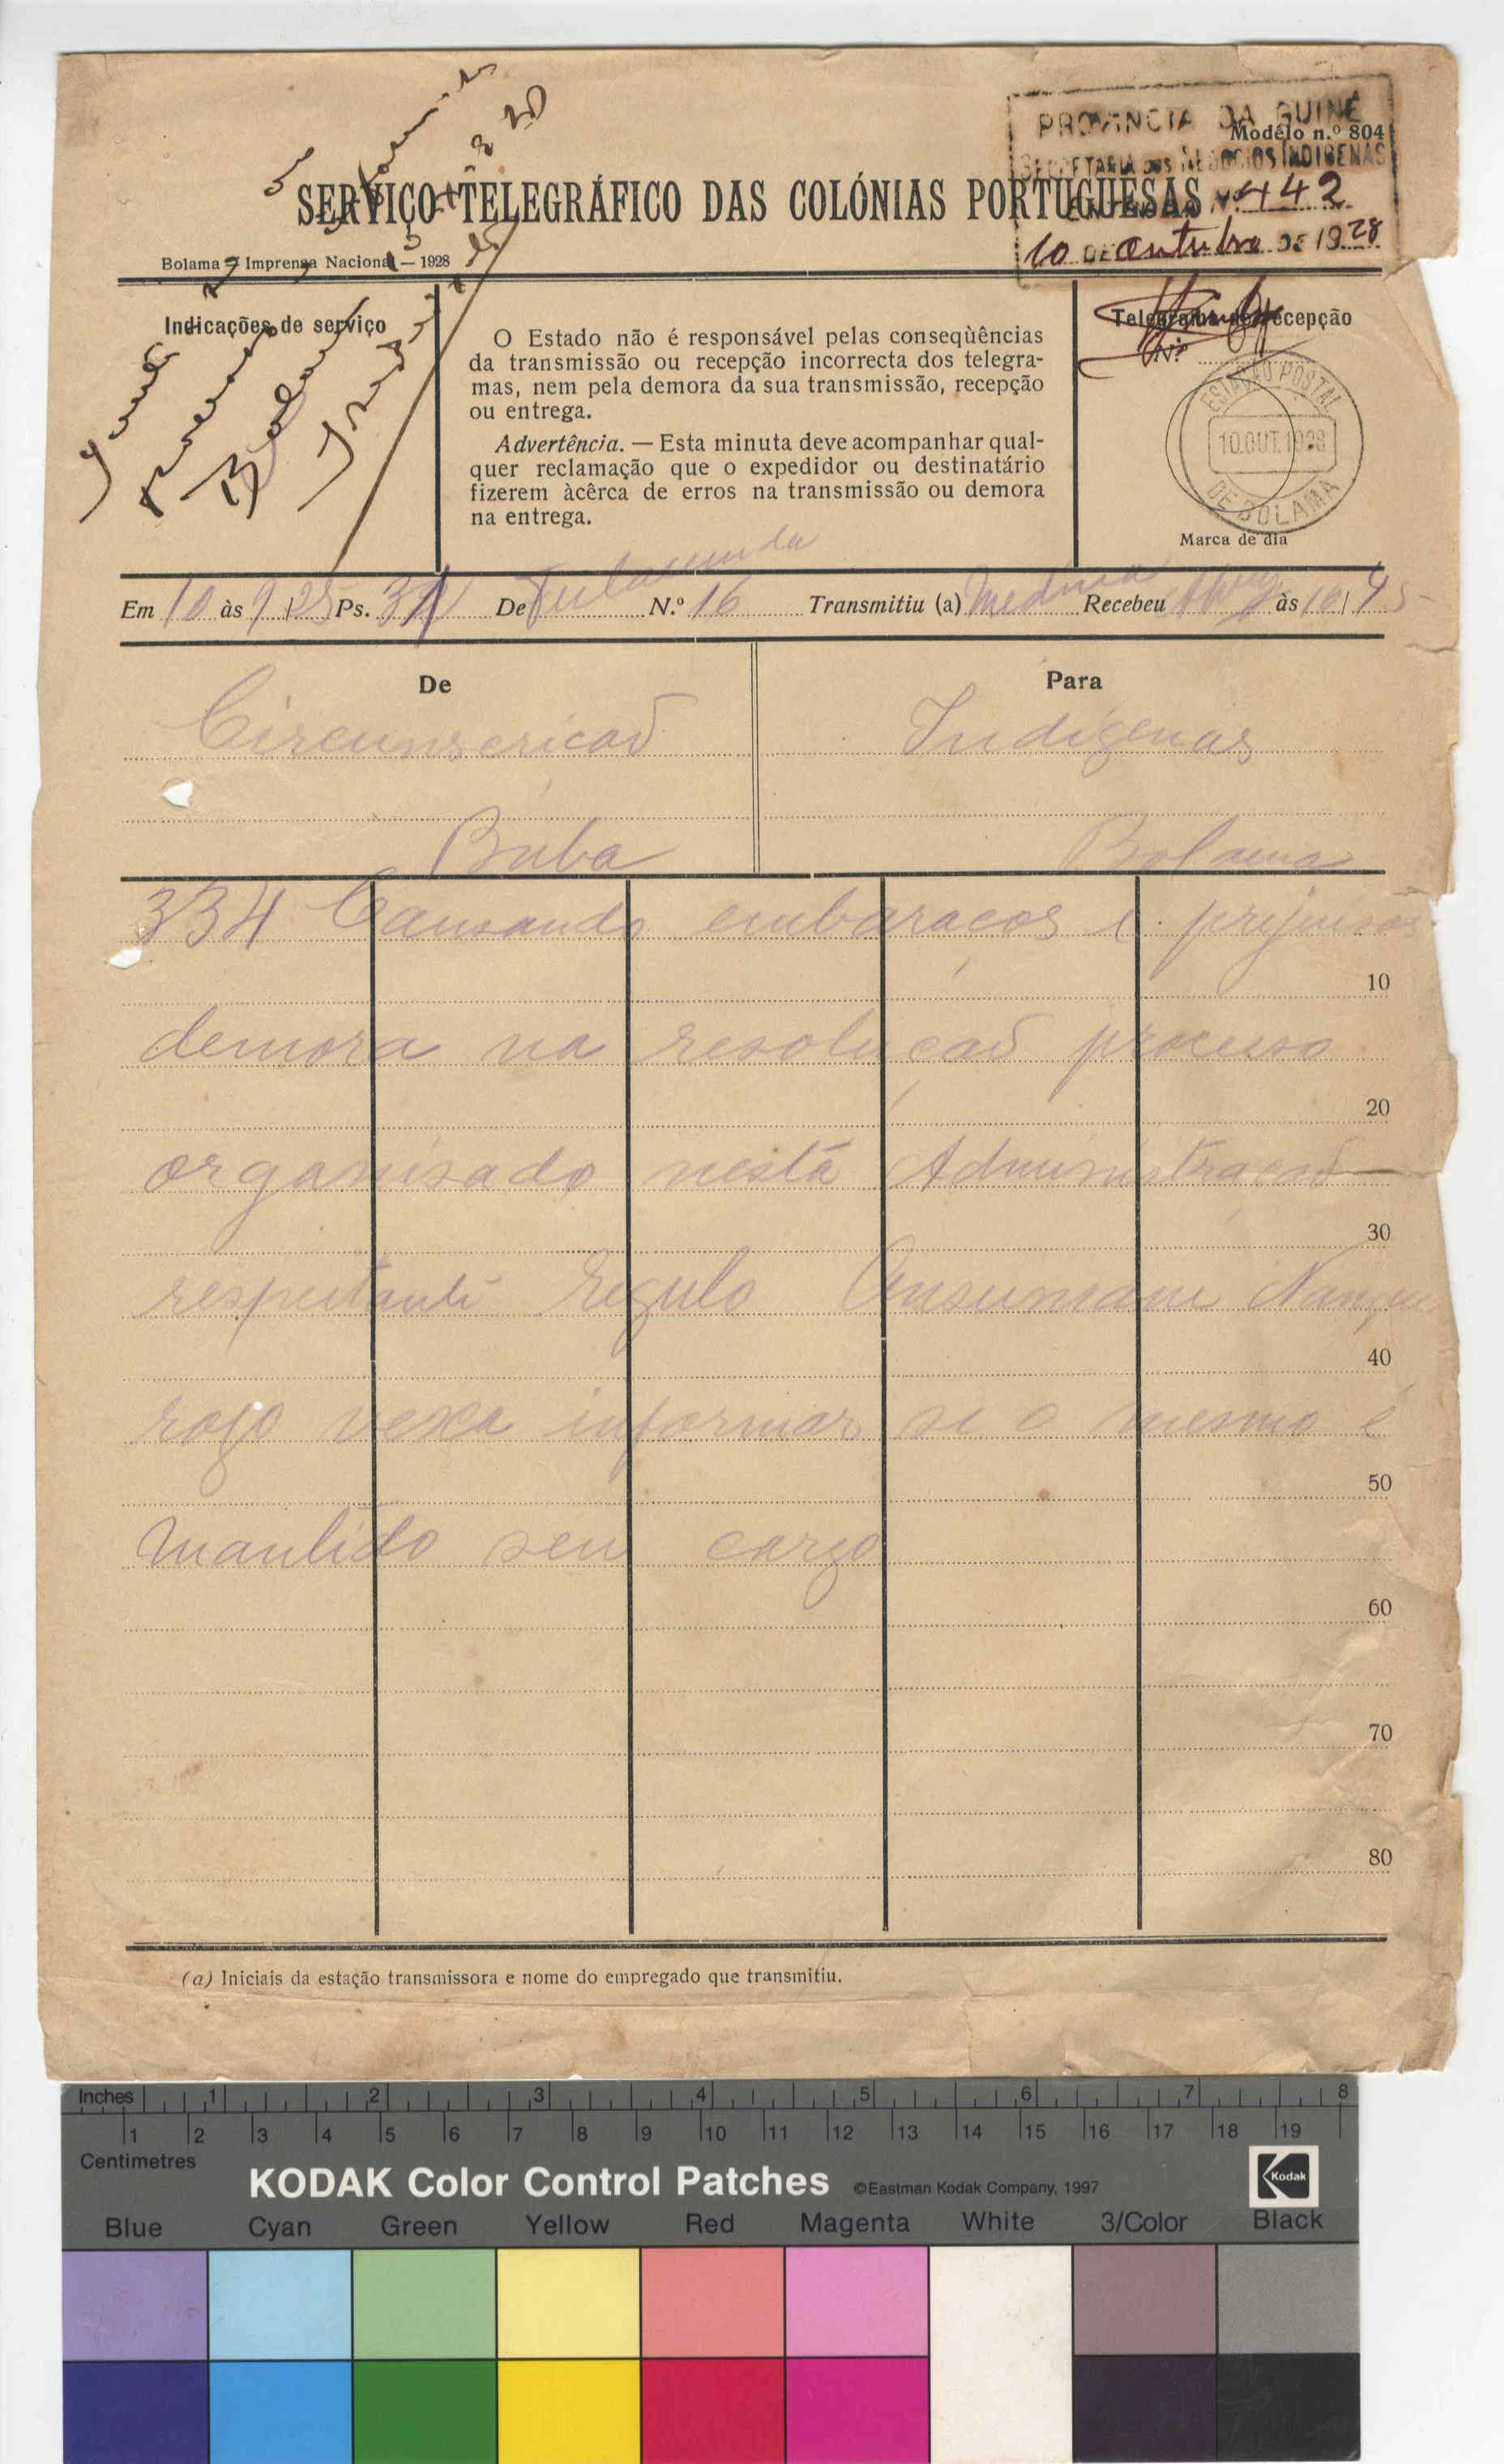 PROVINCIA DA GUINÉ
Modêlo n.º 804
SECRETARIA DOS NEGOCIOS INDIGENAS
SERVIÇO TELEGRÁFICO DAS COLÓNIAS PORTUGUESAS
Nº 442
10 DE Outubro DE 1928
Bolama — Imprensa Nacional — 1928
Indicações de serviço
O Estado não é responsável pelas conseqùências
da transmissão ou recepção incorrecta dos telegra-
mas, nem pela demora da sua transmissão, recepção
ou entrega.
Advertência. — Esta minuta deve acompanhar qual-
quer reclamação que o expedidor ou destinatário
fizerem àcêrca de erros na transmissão ou demora
na entrega.
Telegrama de recepção
N.º
ESTAÇÃO POSTAL
10.OUT.1928
DE BOLAMA
Marca de dia
Em 10 às 9/25 Ps. De Fulacunda N.º 16 Transmitiu (a) Medina Recebeu às 10/45
De
Para
Circunscricaõ
Indigenas
Buba
Bolama
334 Causando embaracos e prejuisos
10
demora na resolucaõ processo
20
organisado nesta Administracaõ
30
respeitante Regulo Onsumane
40
rogo vexa informar se o mesmo é
50
mantido seu cargo
60
70
80
(a) Iniciais da estação transmissora e nome do empregado que transmitiu.
Inches 1 2 3 4 5 6 7 8
1 2 3 4 5 6 7 8 9 10 11 12 13 14 15 16 17 18 19
Centimetres
KODAK Color Control Patches ©Eastman Kodak Company, 1997 Kodak
Blue Cyan Green Yellow Red Magenta White 3/Color Black